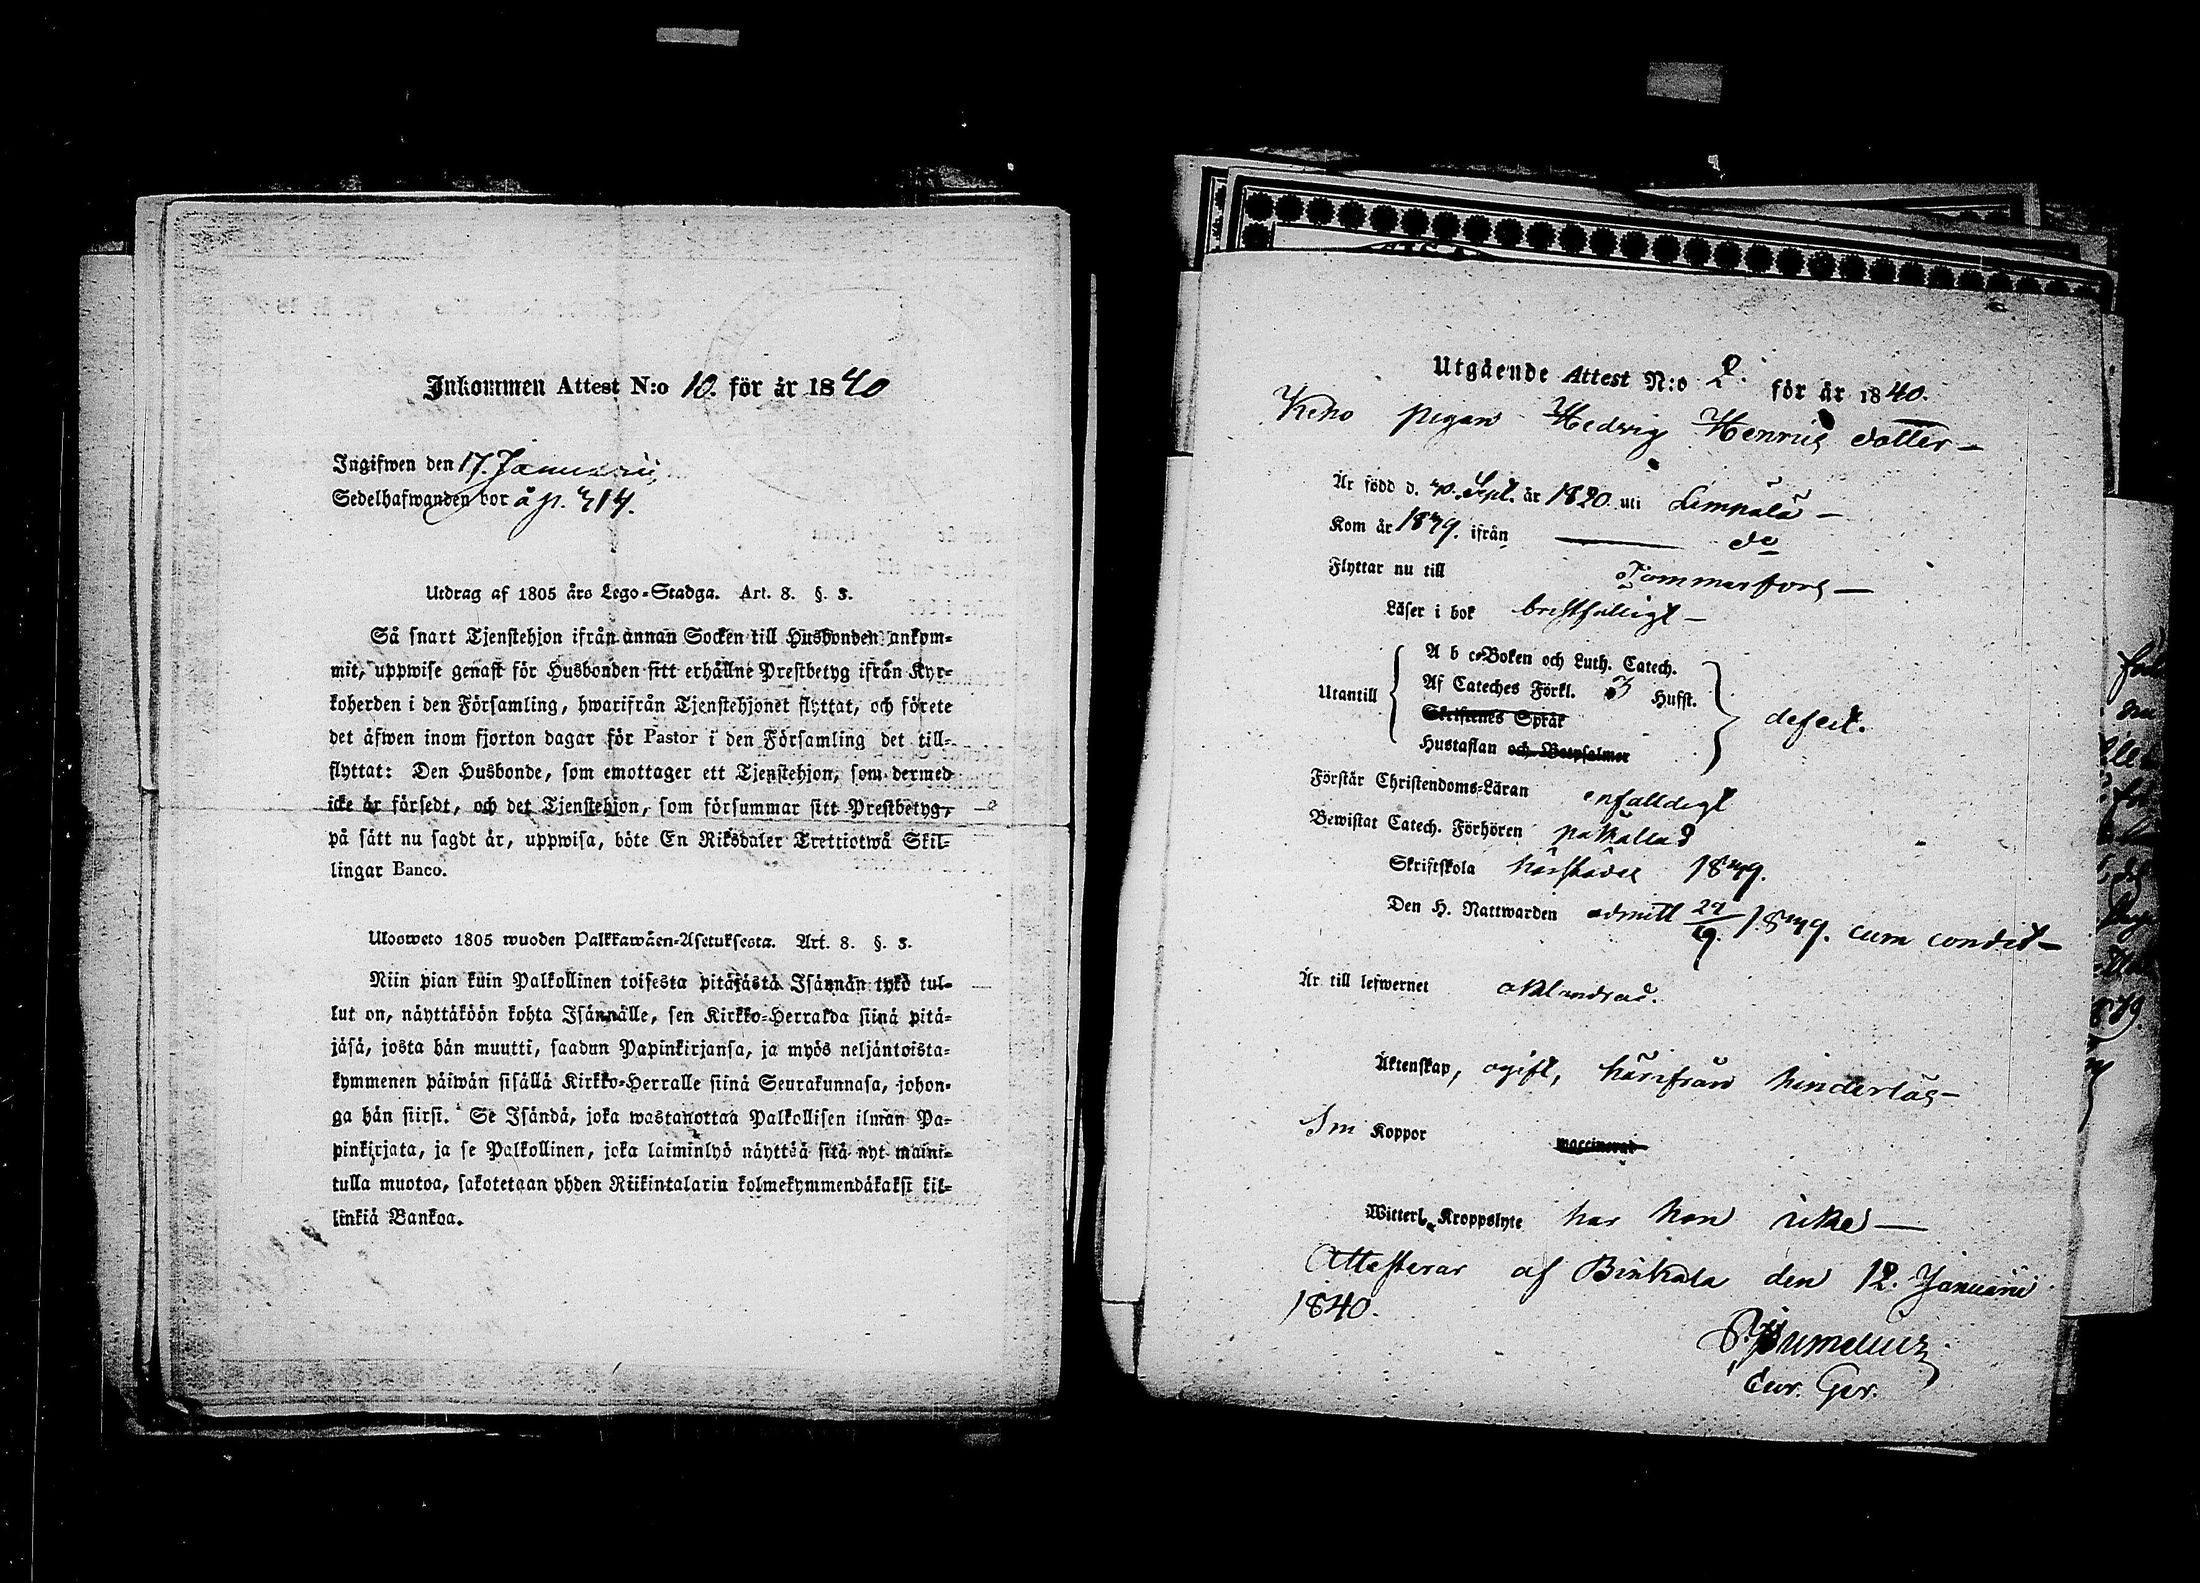 Inkommen Attest N:o 10. för år 1840
Ingifwen den 17. Januarii
Sedelhafwanden bor å p. 314.
Utdrag af 1805 års Lego-Stadga. Art. 8. §. 3.
Så snart Tjenstehjon ifrån annan Socken till Husbonden ankom-
mit, uppwise genast för Husbonden sitt erhållne Prestbetyg ifrån Kyr-
koherden i den Församling, hwarifrån Tjenstehjonet flyttat, och förete
det äfwen inom fjorton dagar för Pastor i den Församling det till-
flyttat: Den Husbonde, som emottager ett Tjenstehjon, som dermed
icke är försedt, och det Tjenstehjon, som försummar sitt Prestbetyg,
på sätt nu sagdt är, uppwisa, böte En Riksdaler Trettiotwå Skil-
lingar Banco.
Ulosweto 1805 wuoden Palkkawäen-Asetuksesta. Art. 8. §. 3.
Niin pian kuin Palkollinen toisesta pitäjästä Isännän tykö tul-
lut on, näyttäköön kohta Isännälle, sen Kirkko-Herralda siinä pitä-
jäsä, josta hän muutti, saadun Papinkirjansa, ja myös neljäntoista-
kymmenen päiwän sisällä Kirkko-Herralle siinä Seurakunnasa, johon-
ga hän siirsi. Se Isändä, joka wastanottaa Palkollisen ilman Pa-
pinkirjata, ja se Palkollinen, joka laiminlyö näyttää sitä nyt maini-
tulla muotoa, sakotetaan yhden Riikintalarin kolmekymmendäkaksi kil-
linkiä Bankoa.
Utgående Attest N:o 2. för år 1840.
pigan Hedvig Henrics dotter
Är född d. 30. Sept. år 1820. uti Lempälä
Kom år 1839. ifrån do
Flyttar nu till Tammerfors
Läser i bok bristfälligt
Utantill
A b c-Boken och Luth. Catech.
Af Cateches Förkl. 3 Hufst.
Skriftenes Språk
Hustaflan och Botpsalmer
defect.
Förstår Christendoms-Läran enfaldigt
Bewistat Catech. Förhören påkallad
Skriftskola härstädes 1839.
Den H. Nattwarden admitt 29/9. 1839. cum condit
Är till lefwernet oklandrad.
Äktenskap, ogift, härifrån hinderlös
Koppor waccinerad
Witterl. Kroppslyte har hon icke
Attesterar af Birkala den 12. Januarii
1840.
Cur. Ger.